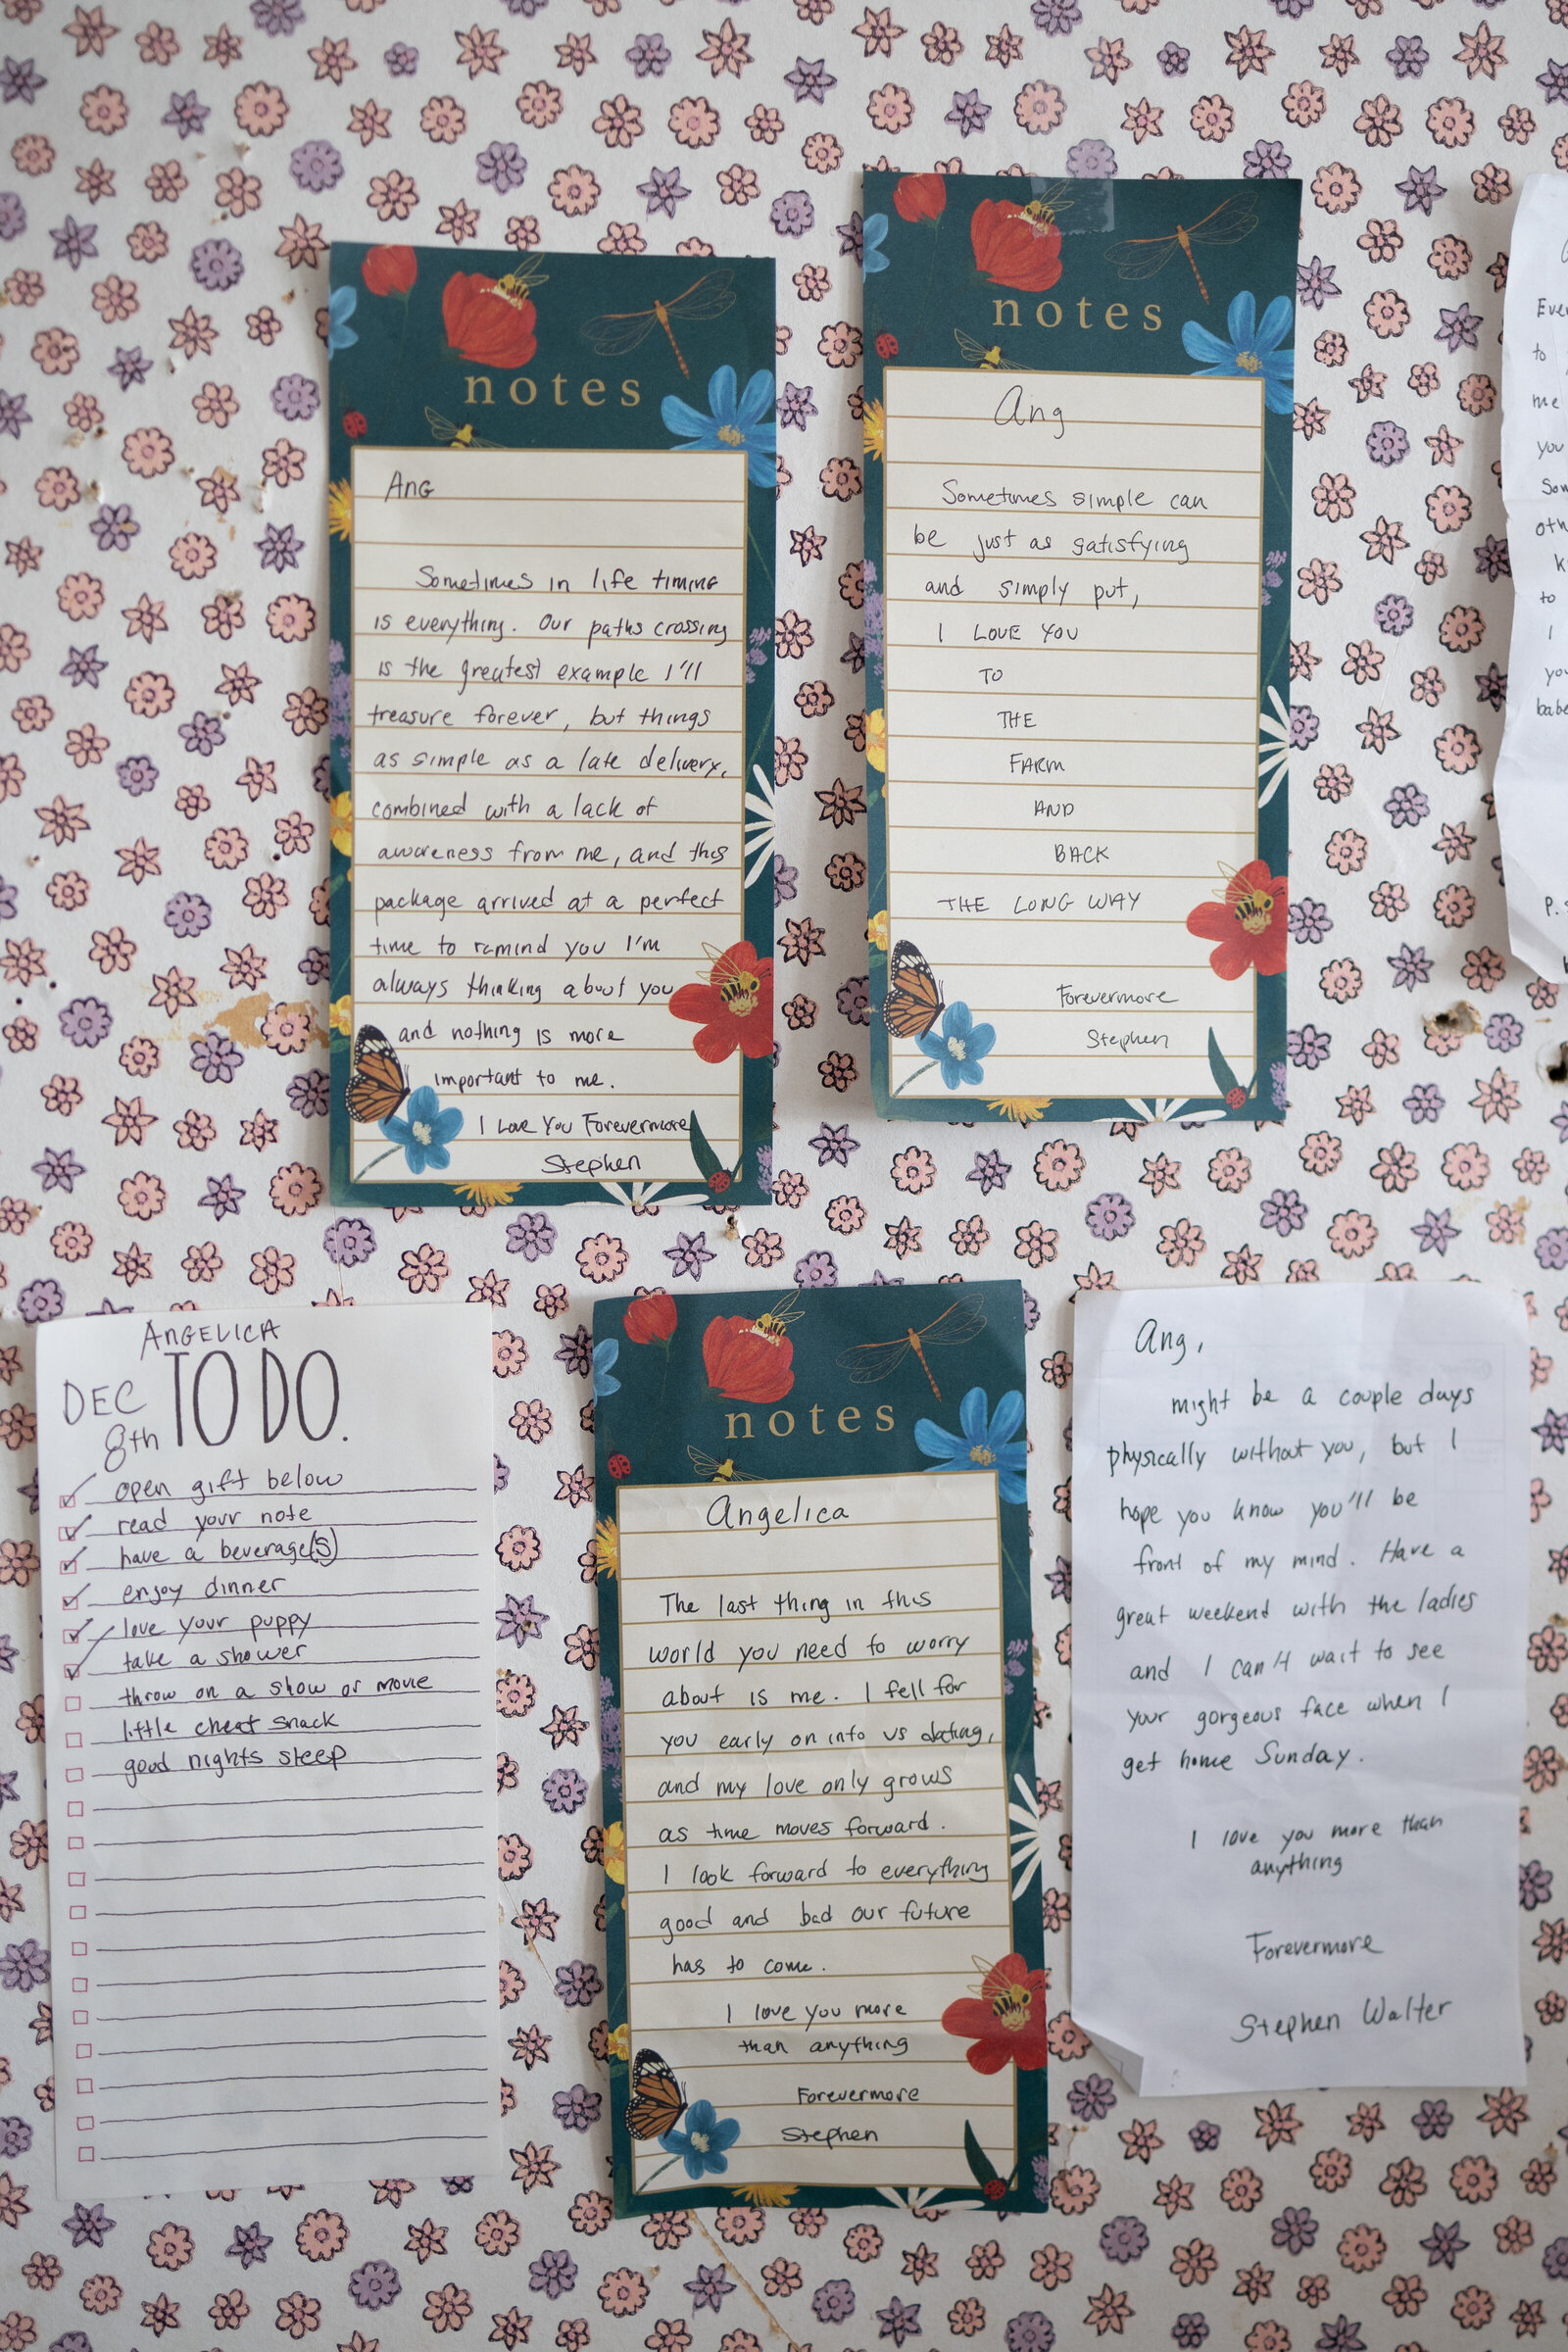 notes
Ang
Sometimes in life timing
is everything. Our paths crossing
is the greatest example I'll
treasure forever, but things
as simple as a late delivery,
combined with a lack of
awareness from me, and this
package arrived at a perfect
time to remind you I'm
always thinking about you
and nothing is more
important to me.
I Love You Forevermore
Stephen
notes
Ang
Sometimes simple can
be just as satisfying
and simply put,
I LOVE YOU
TO
THE
FARM
AND
BACK
THE LONG WAY
Forevermore
Stephen
to
me
you
to
I
babe
P.S
ANGELICA
DEC
8th
TO DO.
open gift below
read your note
have a beverage(s)
enjoy dinner
love your puppy
take a shower
throw on a show or movie
little cheat snack
good nights sleep
notes
Angelica
The last thing in this
world you need to worry
about is me. I fell for
you early on into us dating,
and my love only grows
as time moves forward.
I look forward to everything
good and bad our future
has to come.
I love you more
than anything
Forevermore
Stephen
Ang,
might be a couple days
physically without you, but I
hope you know you'll be
front of my mind. Have a
great weekend with the ladies
and I can't wait to see
your gorgeous face when I
get home Sunday.
I love you more than
anything
Forevermore
Stephen Walter